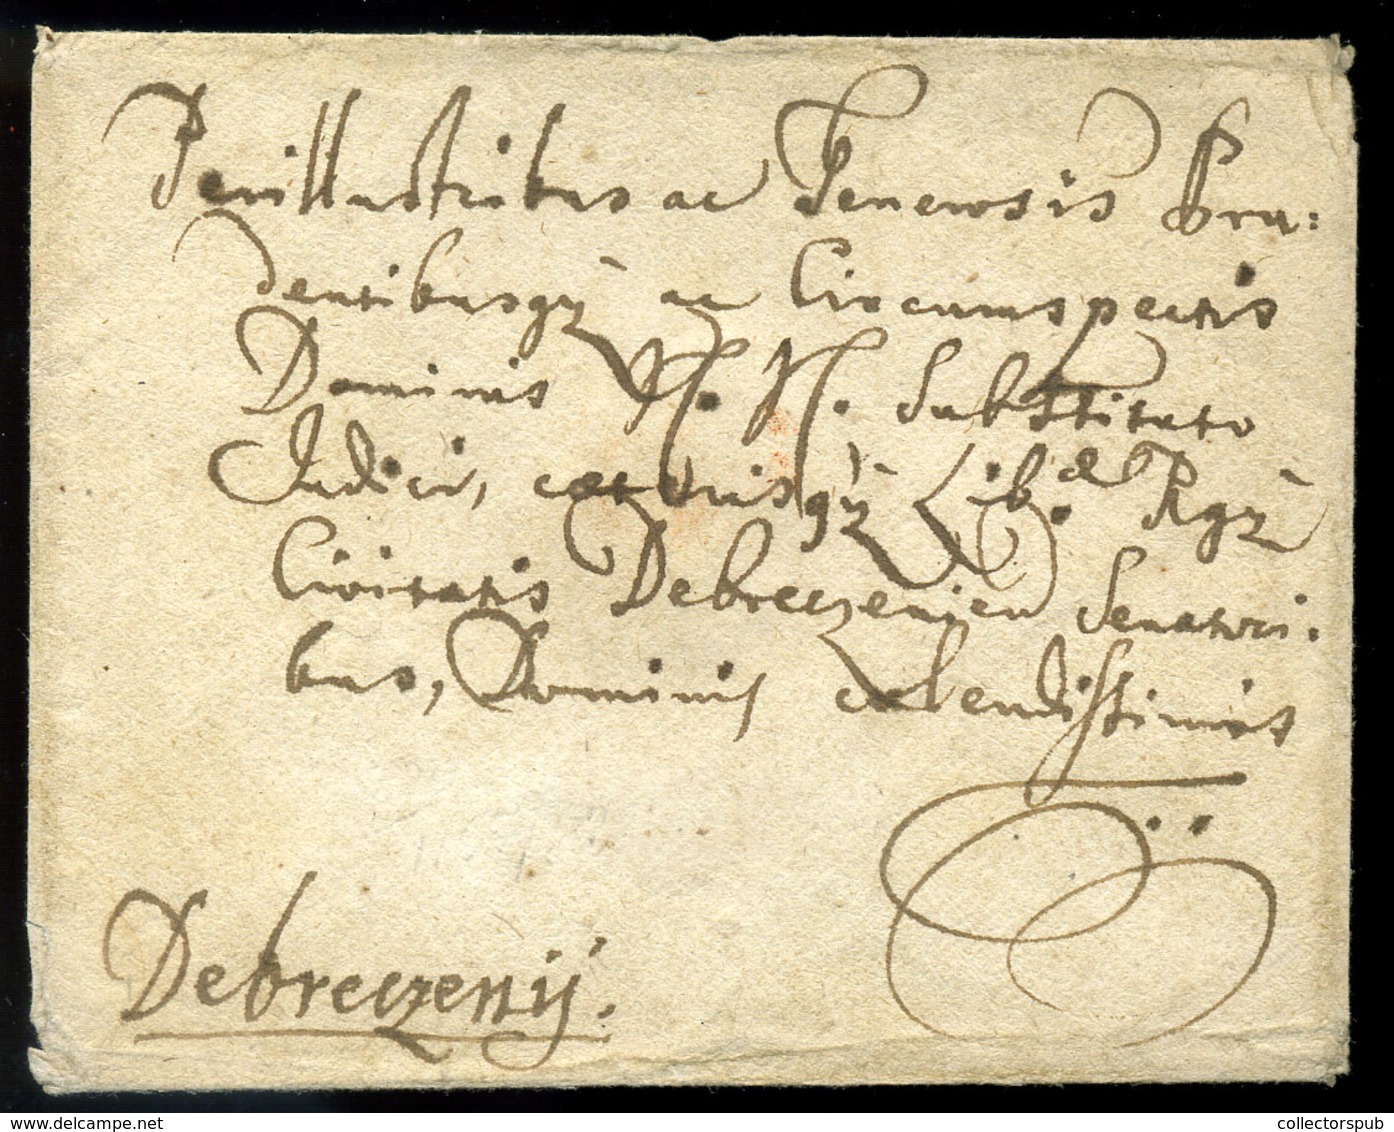 Perillustribus ac Generosis Pru=
dentibusq̀ ac Circumspectis
Dominis N. N. Substituto
Judici, cæterisq̀ Lib. ac Rgæ
Civitatis Debreczenien Senatori.
bus, Dominis colendissimis
Debreczenij.
www.delcampe.net
collectorspub